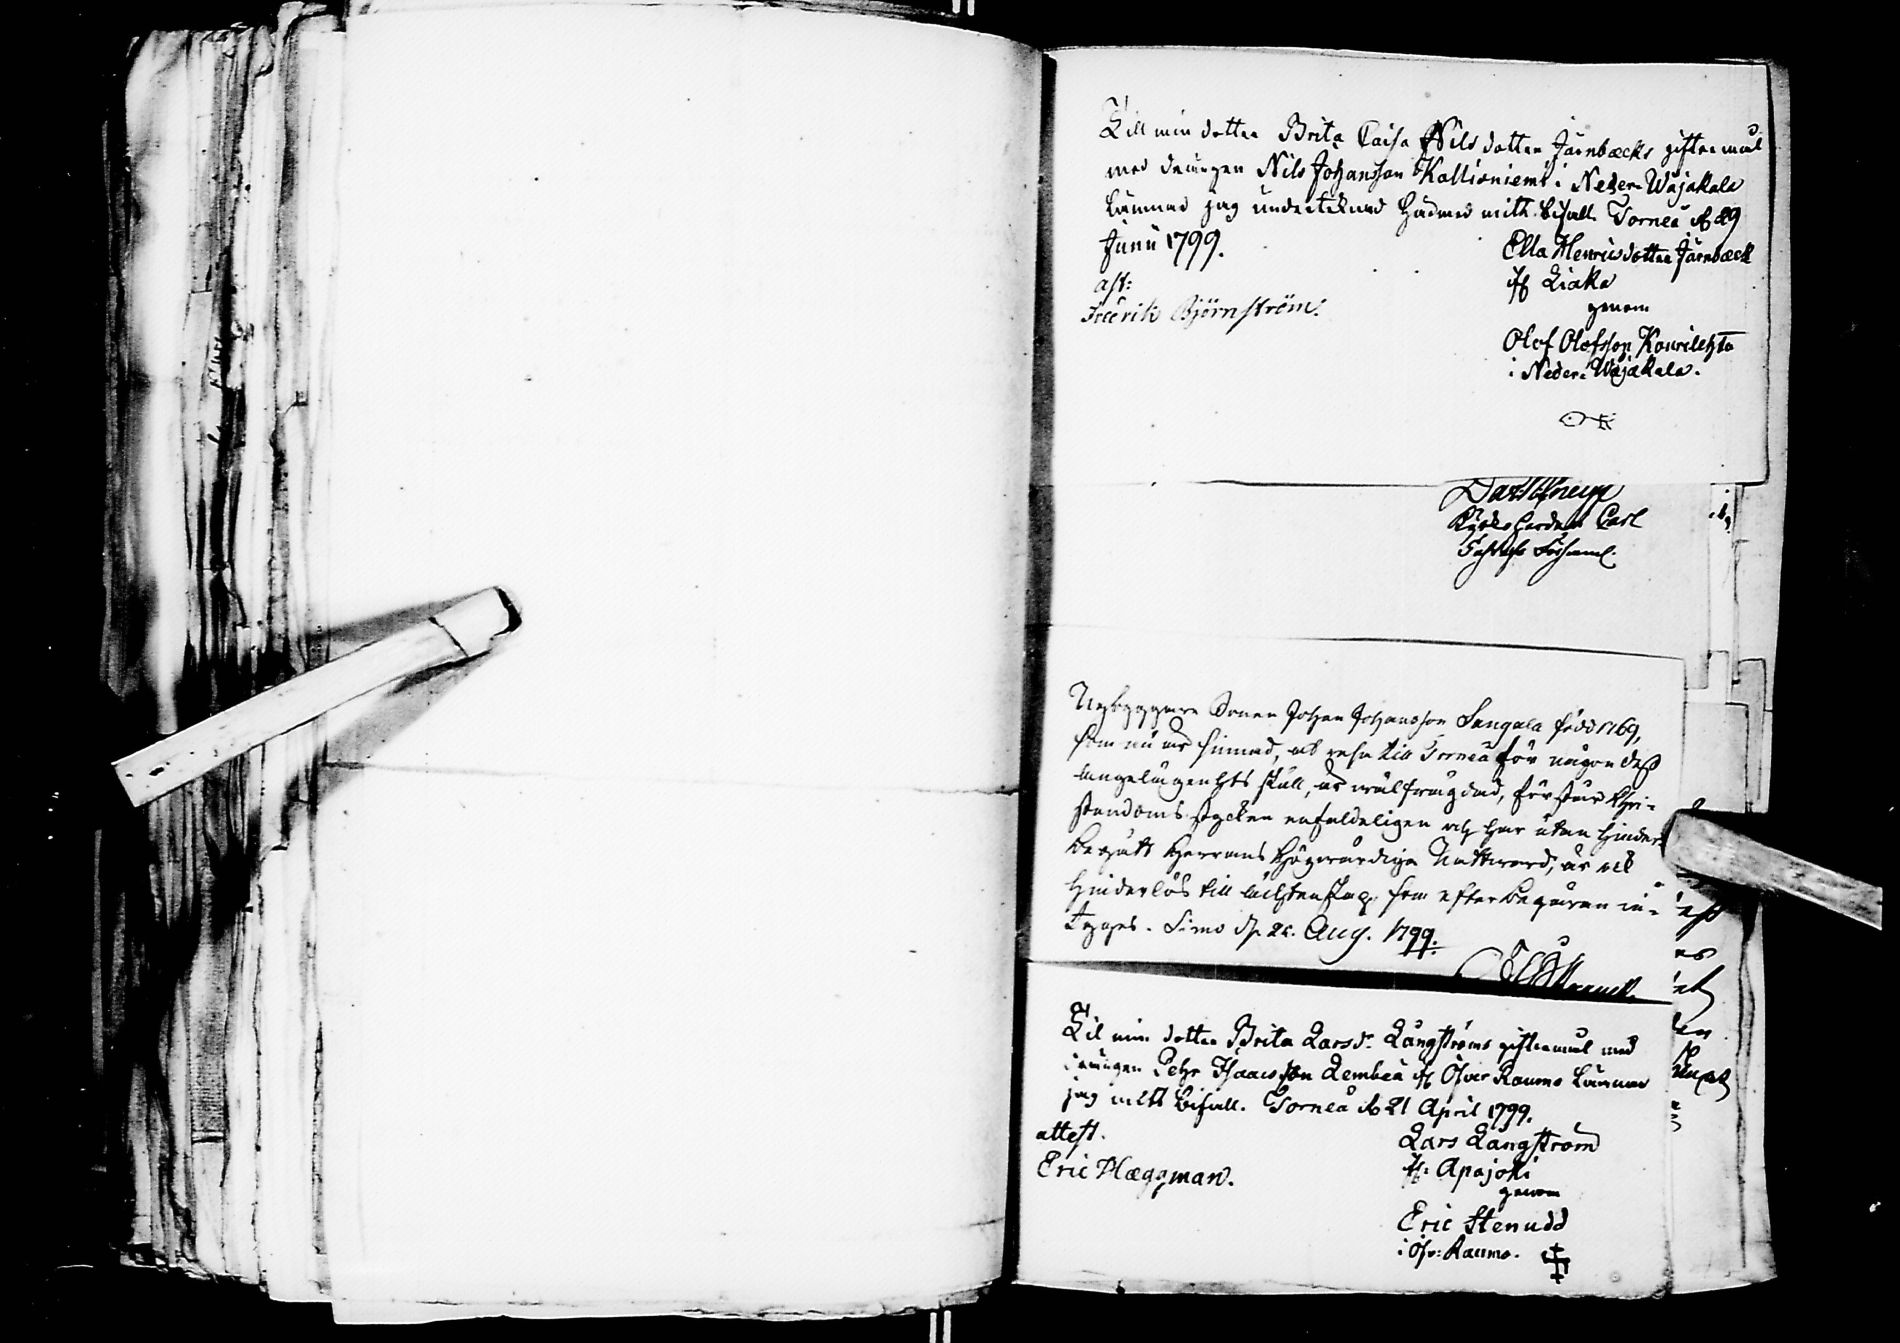 Till min dotter Brita Caisa Nilsdotter Järnbæcks giftermål
med drängen Nils Johansson Kallioniemi i Neder Wojakala
lämnar jag underteknad härmed mitt bifall. Torneå d. 29
Junii 1799.
Ella Henricsdotter Järnbæck
fr Liaka
genom
Olof Olofsson
i Neder Wojakala.
att:
Fredrik Björnström.
Carl
Nybyggare Sonen Johan Johansson Sangala född 1769,
som nu är sinnad, at resa till Torneå för någon dess
angelägenhets skull, är wälfrägdad, förstår Chri-
stendoms stycken enfaldeligen och har utan hinder
begått Herrans Högwärdiga Nattward, är ock
hinderlös till ächtenskap, som efter begäran in-
tygas. Simo d. Aug. 1799.
Til min dotter Brita Larsdr Långströms giftermål med
drängen Pehr Isaacsson Lembea fr Öfver Raumo lämnar
jag mitt bifall. Torneå d. 21 April 1799.
Lars Långström
fr: Apajoki
genom
Eric Stenudd
i Öfv: Raumo.
attest.
Eric Hæggman.